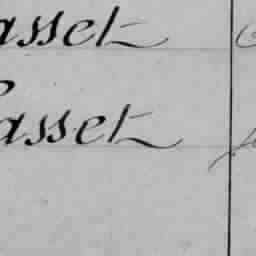 asset
asset